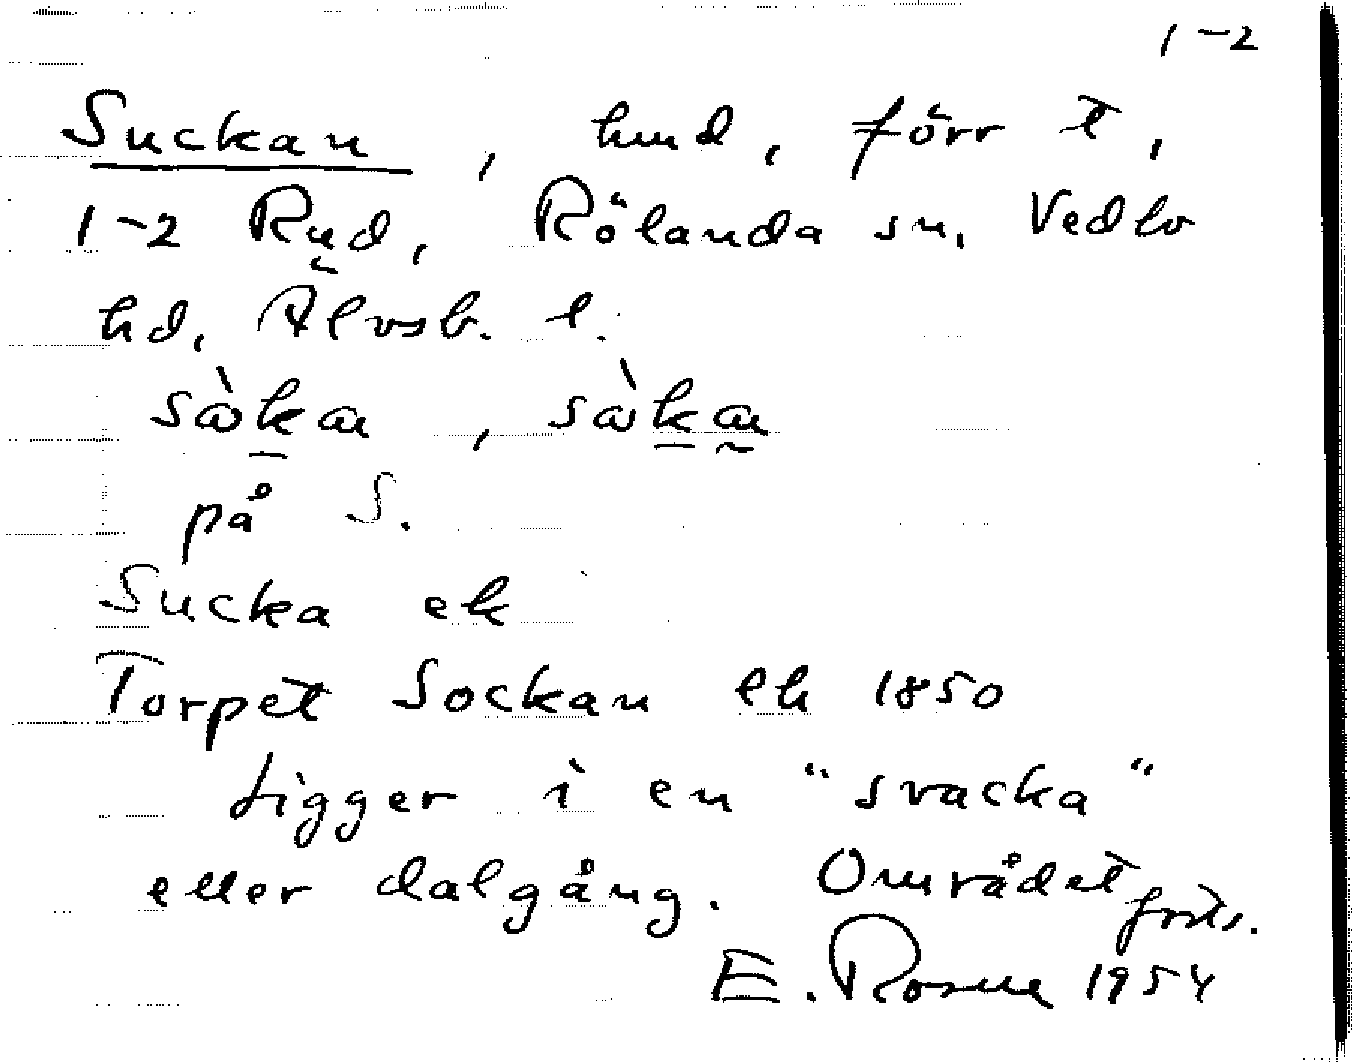 1-2
Suckan, hmd, förr t,
1-2 Ryd, Rölanda sn, Vedbo
hd, Älvsb. l.
på S.
Sucka ek
Torpet Sockan ek 1850
Ligger i en "svacka"
eller dalgång. Området forts.
E. Rosell 1954